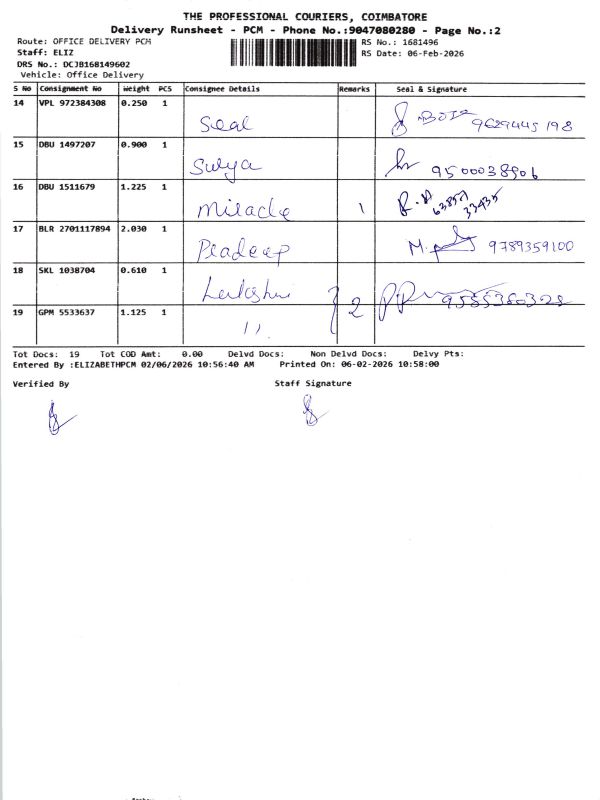 THE PROFESSIONAL COURIERS, COIMBATORE
Delivery Runsheet - PCM - Phone No.:9047080280 - Page No.:2
Route: OFFICE DELIVERY PCM
Staff: ELIZ
DRS No.: DCJB168149602
Vehicle: Office Delivery
RS No.: 1681496
RS Date: 06-Feb-2026
S No Consignment No Weight PCS Consignee Details Remarks Seal & Signature
14 VPL 972384308 0.250 1 Seal 9629445198
15 DBU 1497207 0.900 1 Surya 9500038906
16 DBU 1511679 1.225 1 Miracle 1 63857 33435
17 BLR 2701117894 2.030 1 Pradeep 9789359100
18 SKL 1038704 0.610 1 2
19 GPM 5533637 1.125 1 11
Tot Docs: 19 Tot COD Amt: 0.00 Delvd Docs: Non Delvd Docs: Delvy Pts:
Entered By :ELIZABETHPCM 02/06/2026 10:56:40 AM Printed On: 06-02-2026 10:58:00
Verified By Staff Signature